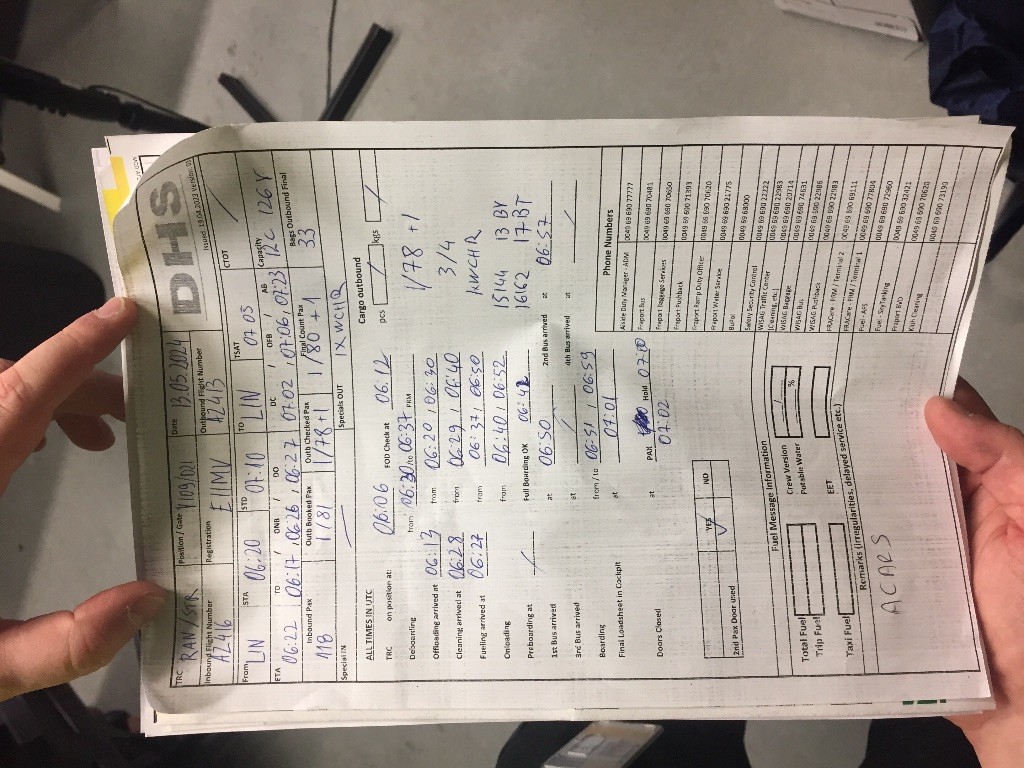 DHS
Issued: 19.04.2023 Version: 01
TRC RAN / STR Position / Gate V109/D21 Date 13.05.2024
Inbound Flight Number AZ416 Registration EIIMV Outbound Flight Number AZ413
From LIN STA 06:20 STD 07:10 TO LIN TSAT 07 05 CTOT /
ETA 06:22 TO 06:17 / ONB 06:26 / DO 06:27 DC 07:02 / OFB 07:06 / AB 07:23 Capacity 12C 126Y
Inbound Pax 118 Outb Booked Pax 1/81 Outb Checked Pax 1/78+1 Final Count Pax 1/80+1 Bags Outbound Final 33
Special IN Specials OUT 1xWCHR
ALL TIMES IN UTC Cargo outbound
TRC on position at: 06:06 FOD Check at 06:12 pcs / kgs /
Deboarding from 06:30 / to 06:37 PRM 1/78 +1
Offloading arrived at 06:13 from 06:20 / 06:30
Cleaning arrived at 06:28 from 06:29 / 06:40 3/4
Fueling arrived at 06:27 from 06:37 / 06:50 KWCHR
Onloading from 06:40 / 06:52 15144 13 BY
Preboarding at / Full Boarding OK 06:42 16162 17 BT
1st Bus arrived at 06:50 2nd Bus arrived at 06:57
3rd Bus arrived at / 4th Bus arrived at /
Boarding from / to 06:51 / 06:59
Final Loadsheet in Cockpit at 07:01
Doors Closed at PAX 07:02 Hold 07:00
2nd Pax Door used YES ✓ NO
Phone Numbers
Airside Duty Manager - ADM 0049 69 690 77777
Fraport Bus 0049 69 690 70481
Fraport Baggage Services 0049 69 690 70600
Fraport Pushback 0049 69 690 71393
Fraport Ramp Duty Officer 0049 69 690 70620
Fraport Water Service 0049 69 690 21775
BuPol 0049 69 68000
Safety Security Control 0049 69 690 22222
WISAG Traffic Center (Cleaning, etc.) 0049 69 690 22983
WISAG Baggage 0049 69 690 20714
WISAG Bus 0049 69 690 74631
WISAG Pushback 0049 69 690 22986
FRACare PRM / Terminal 2 0049 69 690 22983
FRACare PRM / Terminal 1 0049 69 690 69111
Fuel - AFS 0049 69 690 77804
Fuel - Skytanking 0049 69 690 72960
Fraport BVD 0049 69 690 32421
0049 69 690 70620
Klüh Cleaning 0049 69 690 73190
Fuel Message Information
Total Fuel Crew Version /
Trip Fuel Potable Water %
Taxi Fuel EET
Remarks (irregularities, delayed service etc.)
ACARS